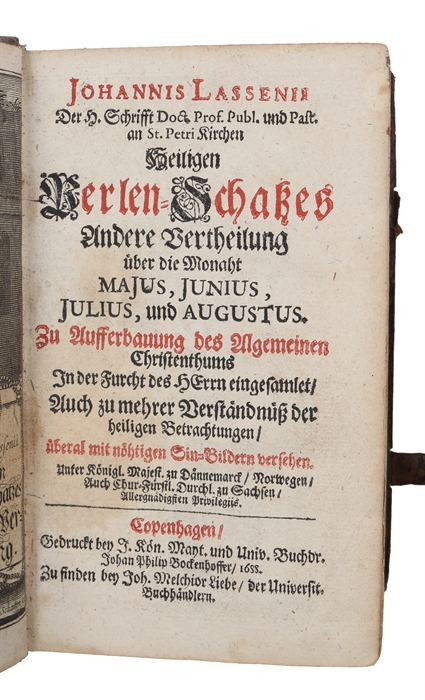 JOHANNIS LASSENII
Der H. Schrifft Doct. Prof. Publ. und Past.
an St. Petri Kirchen
Heiligen
Perlen-Schatzes
Andere Vertheilung
über die Monaht
MAJUS, JUNIUS,
JULIUS, und AUGUSTUS.
Zu Aufferbauung des Algemeinen
Christenthums
In der Furcht des HErrn eingesamlet/
Auch zu mehrer Verständnüß der
heiligen Betrachtungen/
überal mit nöhtigen Sin-Bildern versehen.
Unter Königl. Majest. zu Dännemarck/ Norwegen/
Auch Chur-Fürstl. Durchl. zu Sachsen/
Allergnädigsten Privilegiis.
Copenhagen/
Gedruckt bey J. Kön. Mayt. und Univ. Buchdr.
Johan Philip Bockenhoffer/ 1688.
Zu finden bey Joh. Melchior Liebe/ der Universit.
Buchhändlern.